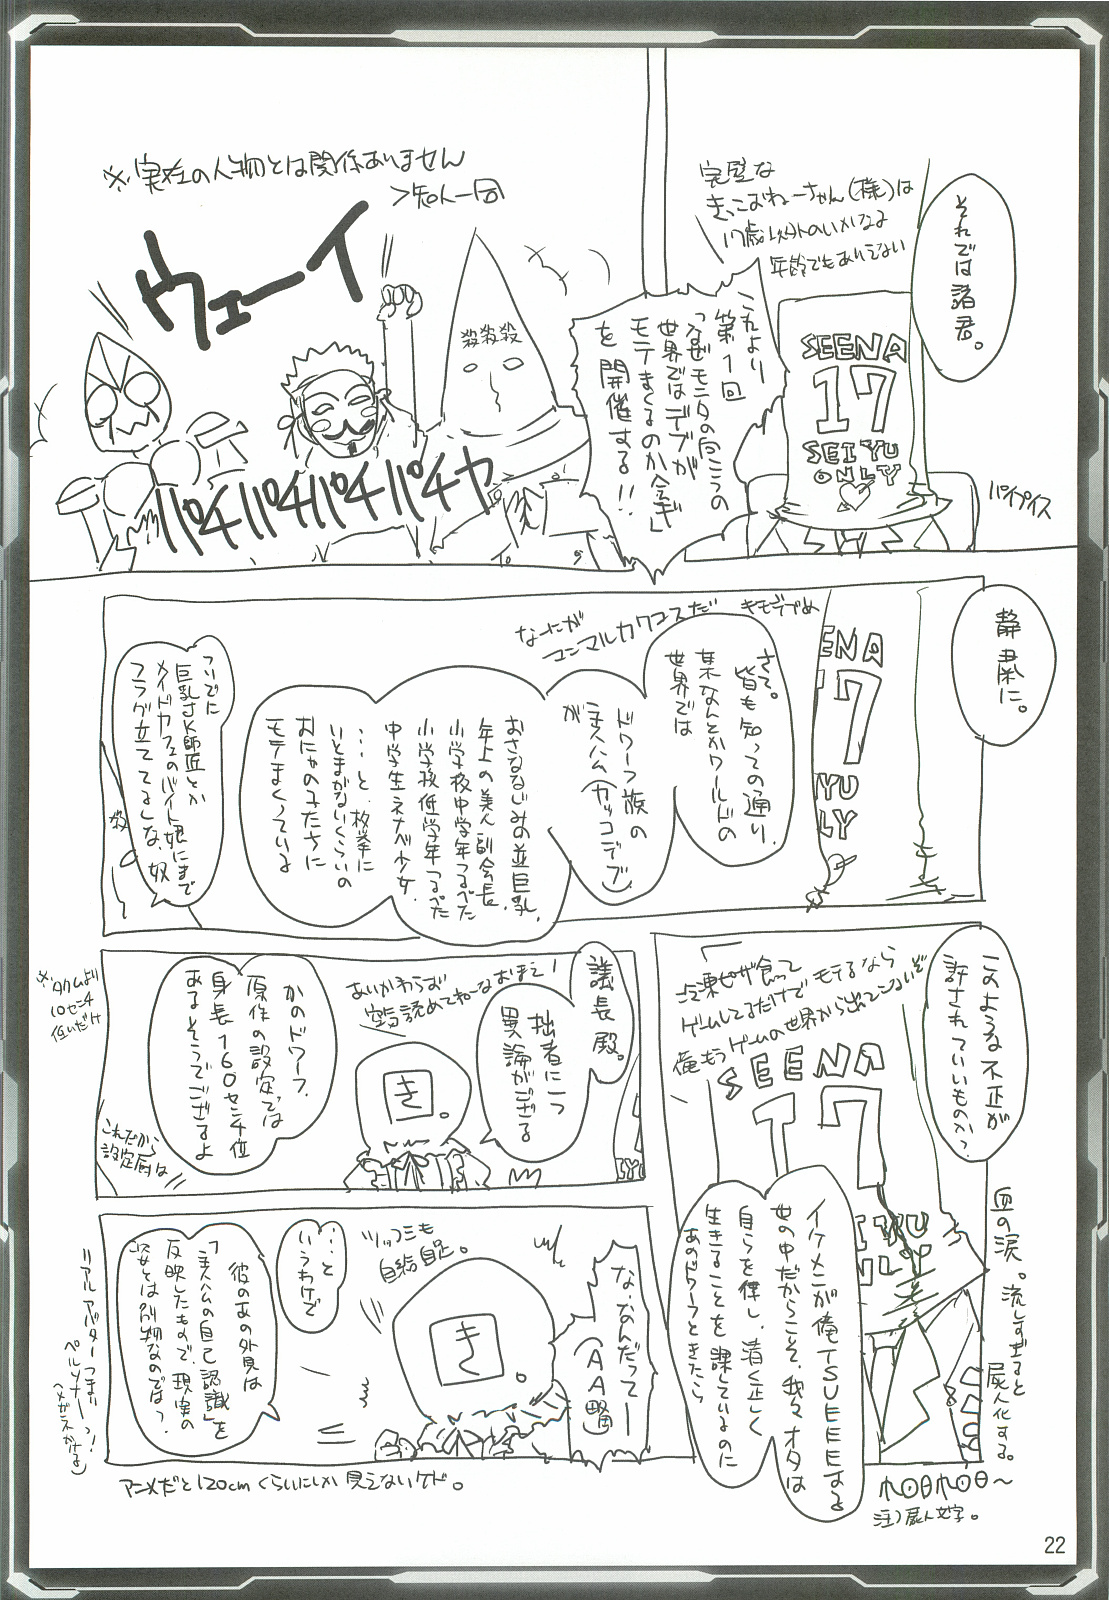 それでは諸君。
完璧な
きっこおねーちゃん(様)は
17歳以外のいかなる
年齢でもありえない
SEENA
17
SEIYU
ONLY
パイプイス
これより
第1回
「なぜモニタの向こうの
世界ではデブが
モテまくるのか会議」
を開催する!!
※実在の人物とは関係ありません
>知人一同
ウェーイ
殺殺殺
パチパチパチパチャ
静粛に。
キモデブめ
なーたが
コンマルカワコスだ
ENA
17
IYU
LY
さて。
皆も知っての通り、
某なんとかワールドの
世界では
ドワーフ族の
主人公(カッコデブ)
が
おさななじみの並巨乳、
年上の美人副会長、
小学校中学年つるぺた
小学校低学年つるぺた
中学生ネナベ少女、
・・・と、枚挙に
いとまがないくらいの
おにゃのこたちに
モテまくっている
ついでに
巨乳JK師匠とか
メイドカフェのバイト娘にまで
フラグ立ててるしな、奴
殺
このような不正が
許されていいものか?
冷凍ピザ食って
ゲームしてるだけでモテるなら
俺もうゲームの世界から出てこないぞ
SEENA
17
イケメンが俺TSUEEEする
世の中だからこそ、我々オタは
自らを律し、清く正しく
生きることを課しているのに
あのドワーフときたら
血の涙。流しすぎると
屍人化する。
注)屍人文字。
議長殿。
拙者に一つ
異論がござる
あいかわらず
空気読めてねーなおまえ!
き。
かのドワーフ、
原作の設定では
身長160センチ位
あるそうでござるよ
※タクムより
10センチ
低いだけ
これだから
設定厨は
な、なんだってー
(AA略)
ツッコミも
自給自足。
き。
・・・と
いうわけで
彼のあの外見は
「主人公の自己認識」を
反映したもので、現実の
彼とは別物なのでは?
リアルアバターつまり
ペルソナーっ!
(メガネかける)
アニメだと120cmくらいにしか見えないケド。
22